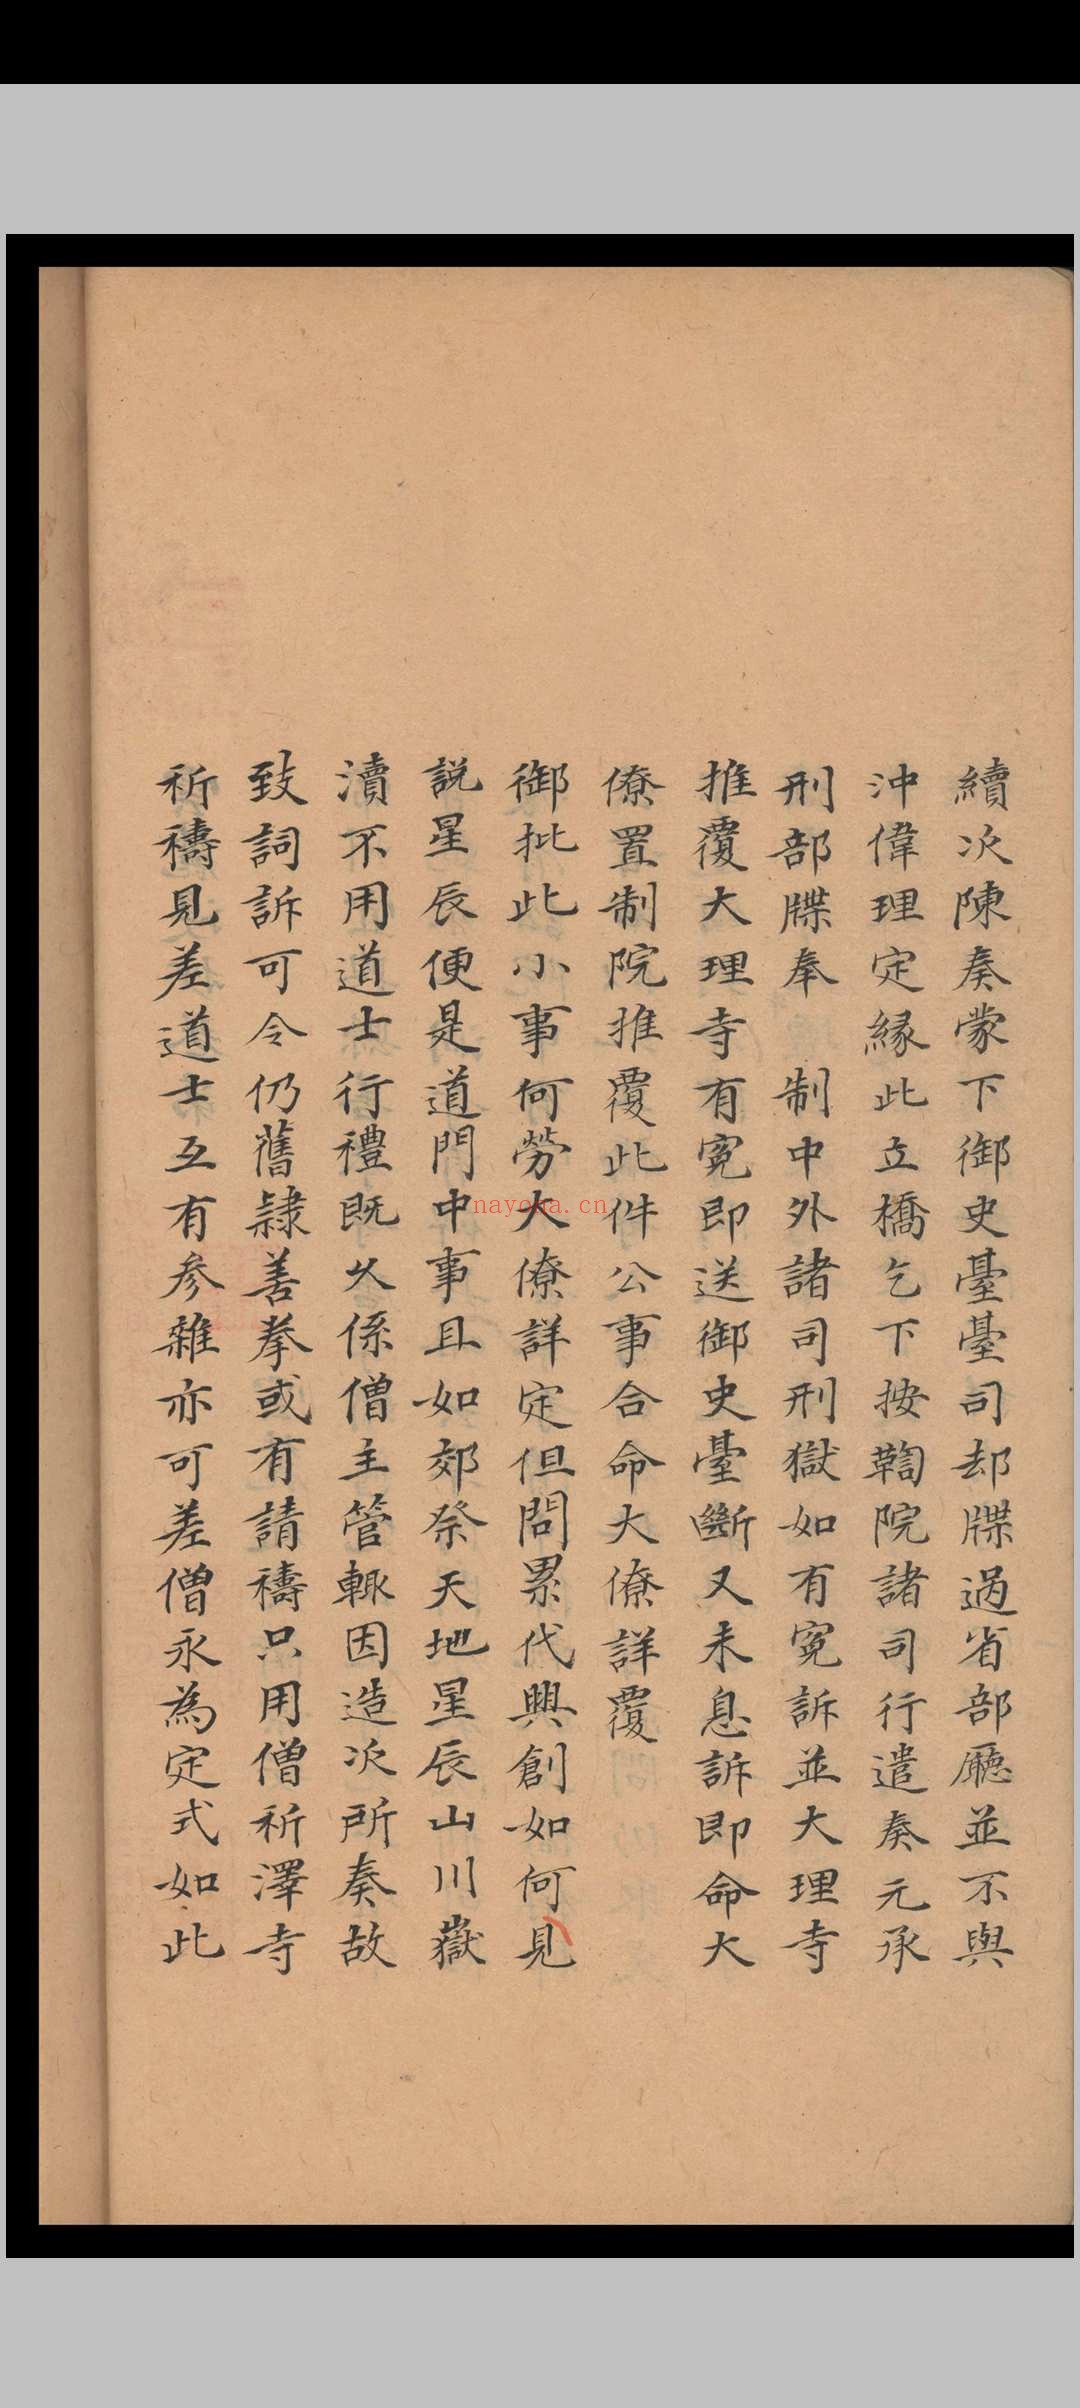 續次陳奏蒙下御史臺臺司却牒過省部廳並不與
沖偉理定緣此立橋乞下按鞫院諸司行遣奏元承
刑部牒奉　制中外諸司刑獄如有冤訴並大理寺
推覆大理寺有冤即送御史臺斷又未息訴即命大
僚置制院推覆此件公事合命大僚詳覆
御批此小事何勞大僚詳定但問累代興創如何見
說星辰便是道門中事且如郊祭天地星辰山川嶽
瀆不用道士行禮既久係僧主管輒因造次所奏故
致詞訴可令仍舊隸善拳或有請禱只用僧祈澤寺
祈禱見差道士互有參雜亦可差僧永為定式如此
nayona.cn